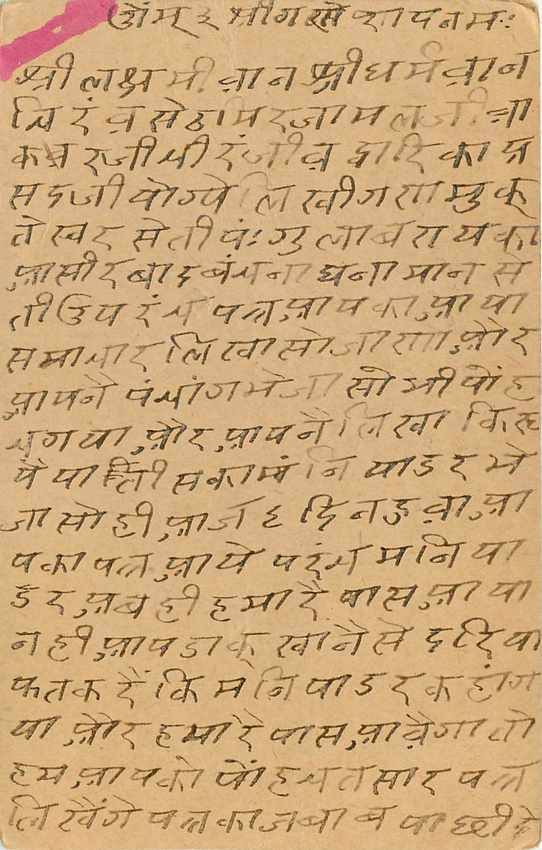 ओंम् ३ श्रीगणेशायनमः
श्री लक्षमीवान श्रीधर्मवान
चिरं व सेठ मिरजामलजी वा
कवरजी चीरंजीव द्वारिकाप्र
सदजी योग्ये लिखीगराामुक्
तेस्वर सेती पंः गुलाबराय का
आसीरबाद बंचना घना मान से
ती उपरंच पत्र आपका आया
समाचार लिखा सो जाराा और
आपने पंचांग भेजा सो भी पोंह
चगया और आपने लिखा कि रू
पे चालीस का मंनियाडर भे
जा सो ही आज ६ दिन हुवा आ
पका पत्र आये परंत मनिया
डर अब ही हमारे पास आया
नही आप डाक्खाने से दरिया
फत करें कि मनियाडर कहां ग
या और हमारे पास आवेगा तो
हम आपको पोंहचतसार पत्र
लिखेंगे पत्र का जबाब पाछी दे